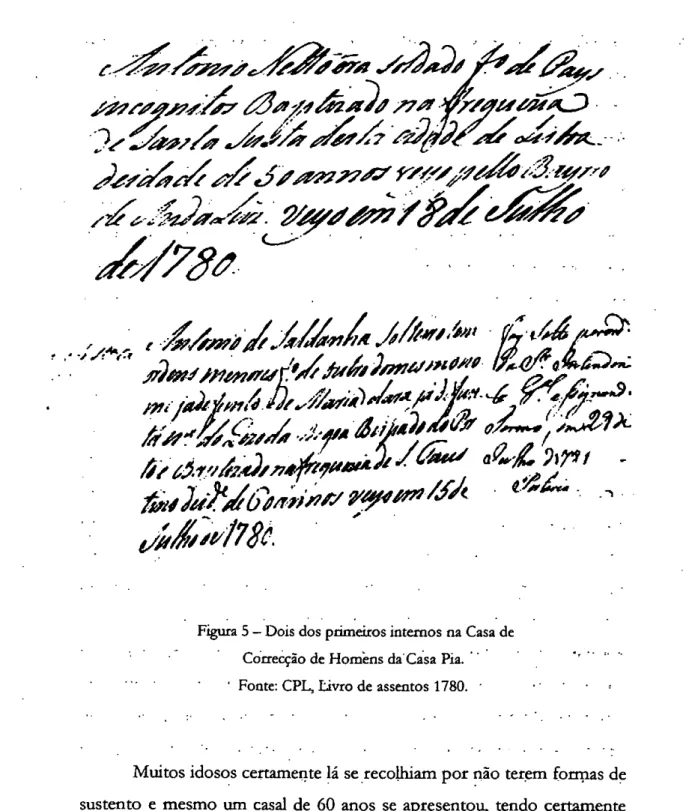 Antonio Netto óra soldado f.º de Pays
incognitos Baptizado na freguezia
de Santa Justa desta cidade de Lisboa
deidade de 50 annos veyo pello Bayrro
de Andaluz. veyo em 18 de Julho
de 1780.
Antonio de Saldanha solteiro tem
ordens menores f.º de outro do mesmo no
me ja defunto e de Maria
Bispado do P
to e Bautizado na freguezia de S.
tino deid.e de 60 annos veyo em 15 de
Julho de 1780.
Foy solto por ord.
em 29 de
Julho d 1781
Figura 5 – Dois dos primeiros internos na Casa de
Correcção de Homens da Casa Pia.
Fonte: CPL, Livro de assentos 1780.
Muitos idosos certamente lá se recolhiam por não terem formas de
sustento e mesmo um casal de 60 anos se apresentou, tendo certamente